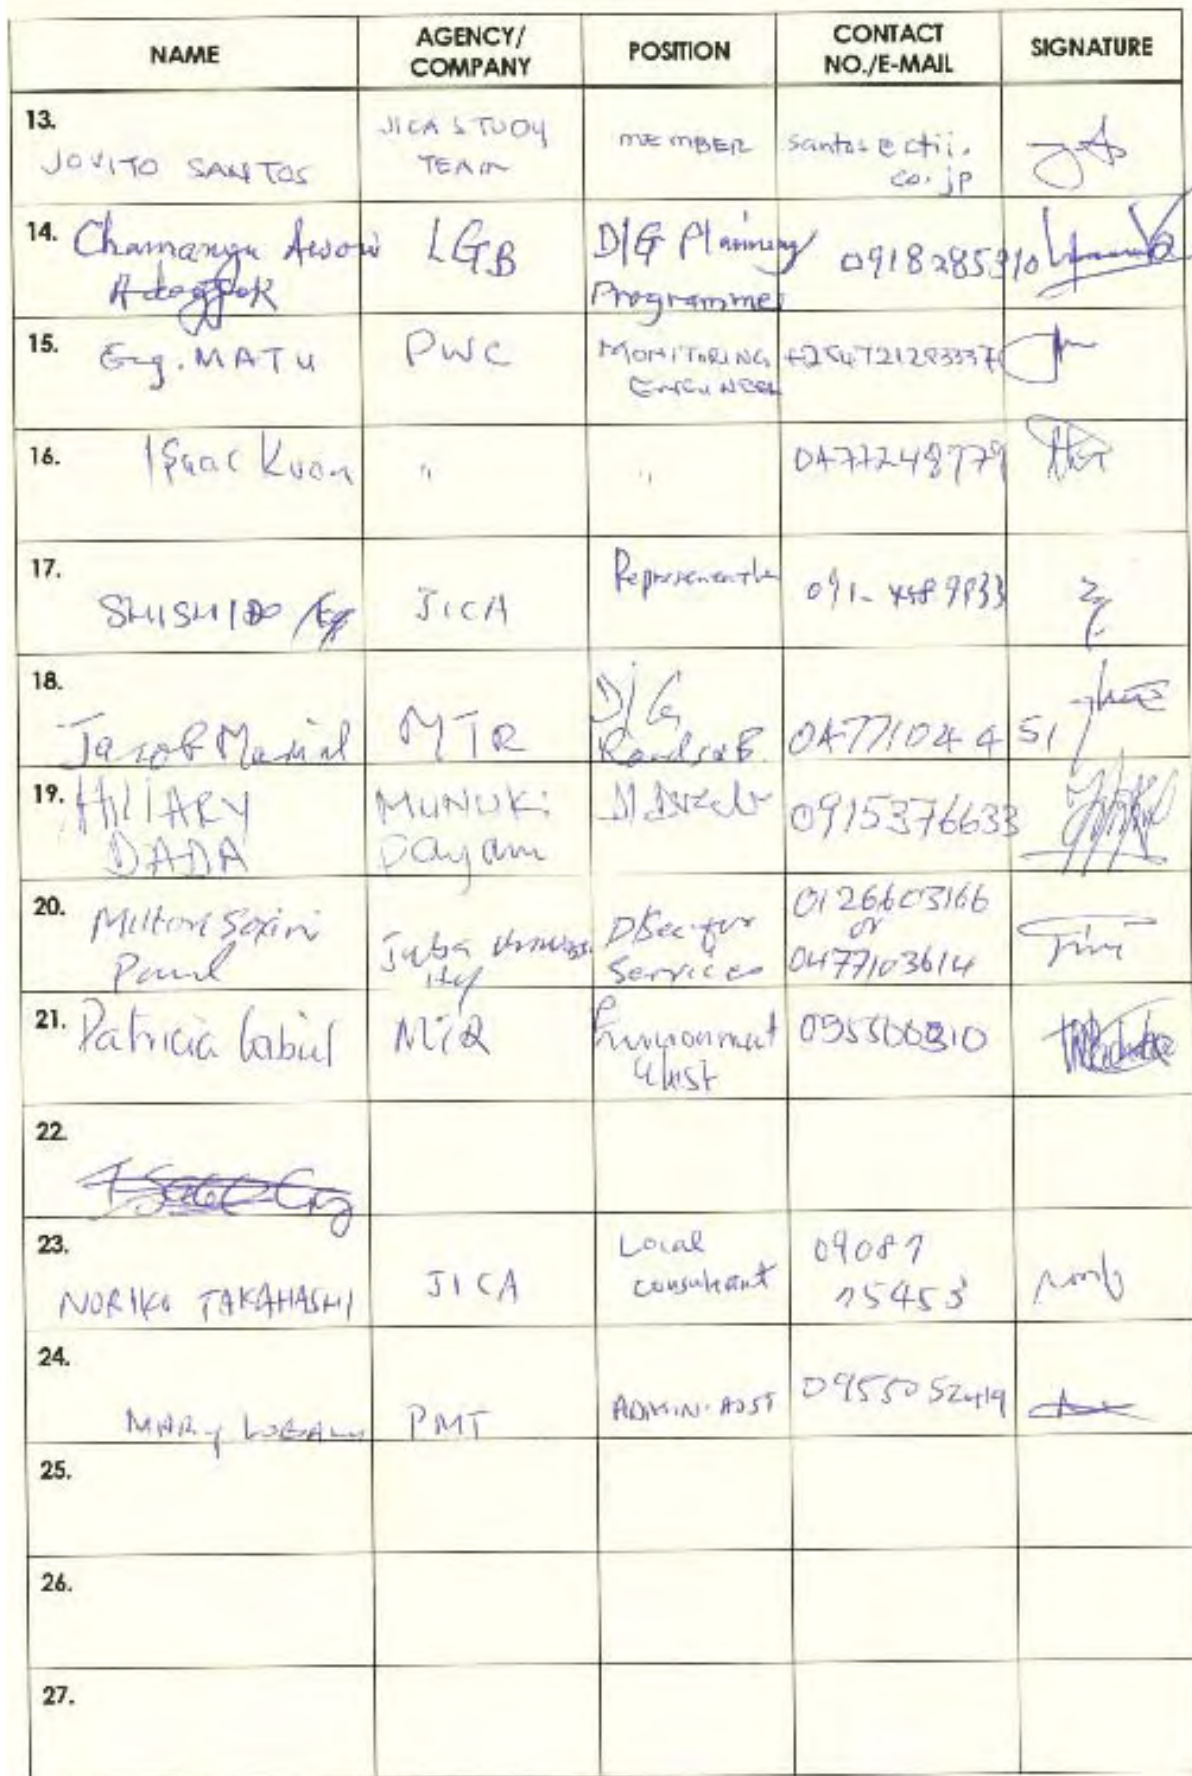 NAME AGENCY/ COMPANY POSITION CONTACT NO./E-MAIL SIGNATURE
13. JOVITO SANTOS JICA STUDY TEAM MEMBER santos@ctii.co.jp
14. Chamangu Awow LGB D/G Planning Programmes 0918285910
15. Eng. MATU PWC MONITORING ENGINEER
16. Isaac Kuon " " 0477248779
17. SHISHIDO JICA Representative
18. Jacob Marial MTR D/G Roads & B. 0477104451
19. HILIARY DADA MUNUKI Payam 0915376633
20. Milton Paul Juba University D/Sec for Services 0126603166 or 0477103614
21. Patricia MTR 095500310
22.
23. NORIKO TAKAHASHI JICA Local consultant 09087 75453
24. MARY PMT ADMIN. ASST 0955052419
25.
26.
27.